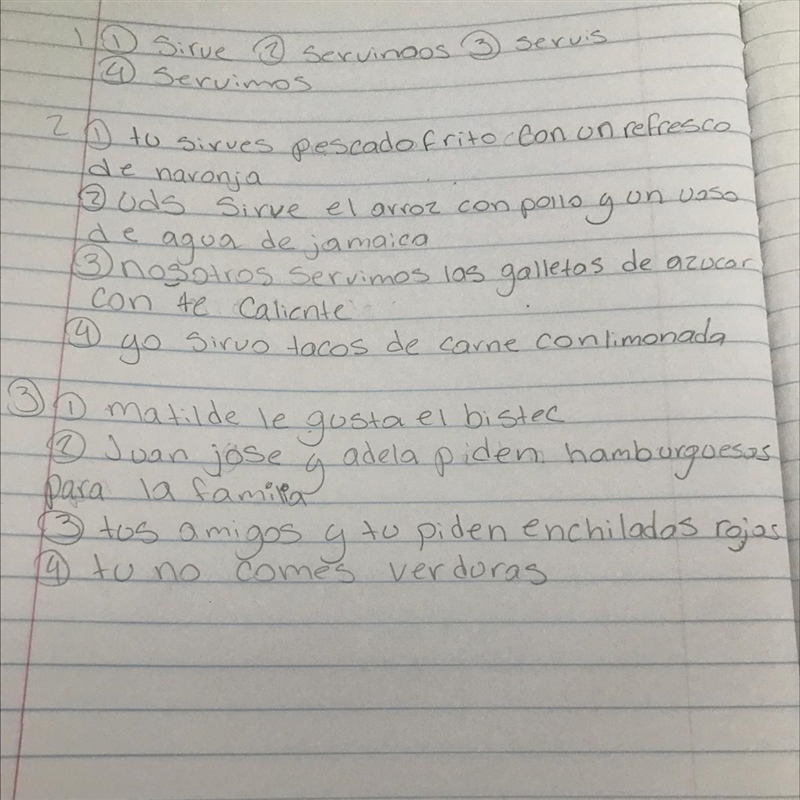 1 ① Sirve ② servimos ③ servis
④ Servimos
2 ① tu sirves pescado frito con un refresco
de naranja
② Uds sirve el arroz con pollo y un vaso
de agua de jamaica
③ nosotros servimos las galletas de azucar
con te caliente
④ yo sirvo tacos de carne con limonada
③ ① matilde le gusta el bistec
② Juan jose y adela piden hamburguesas
para la familia
③ tus amigos y tu piden enchiladas rojas
④ tu no comes verduras